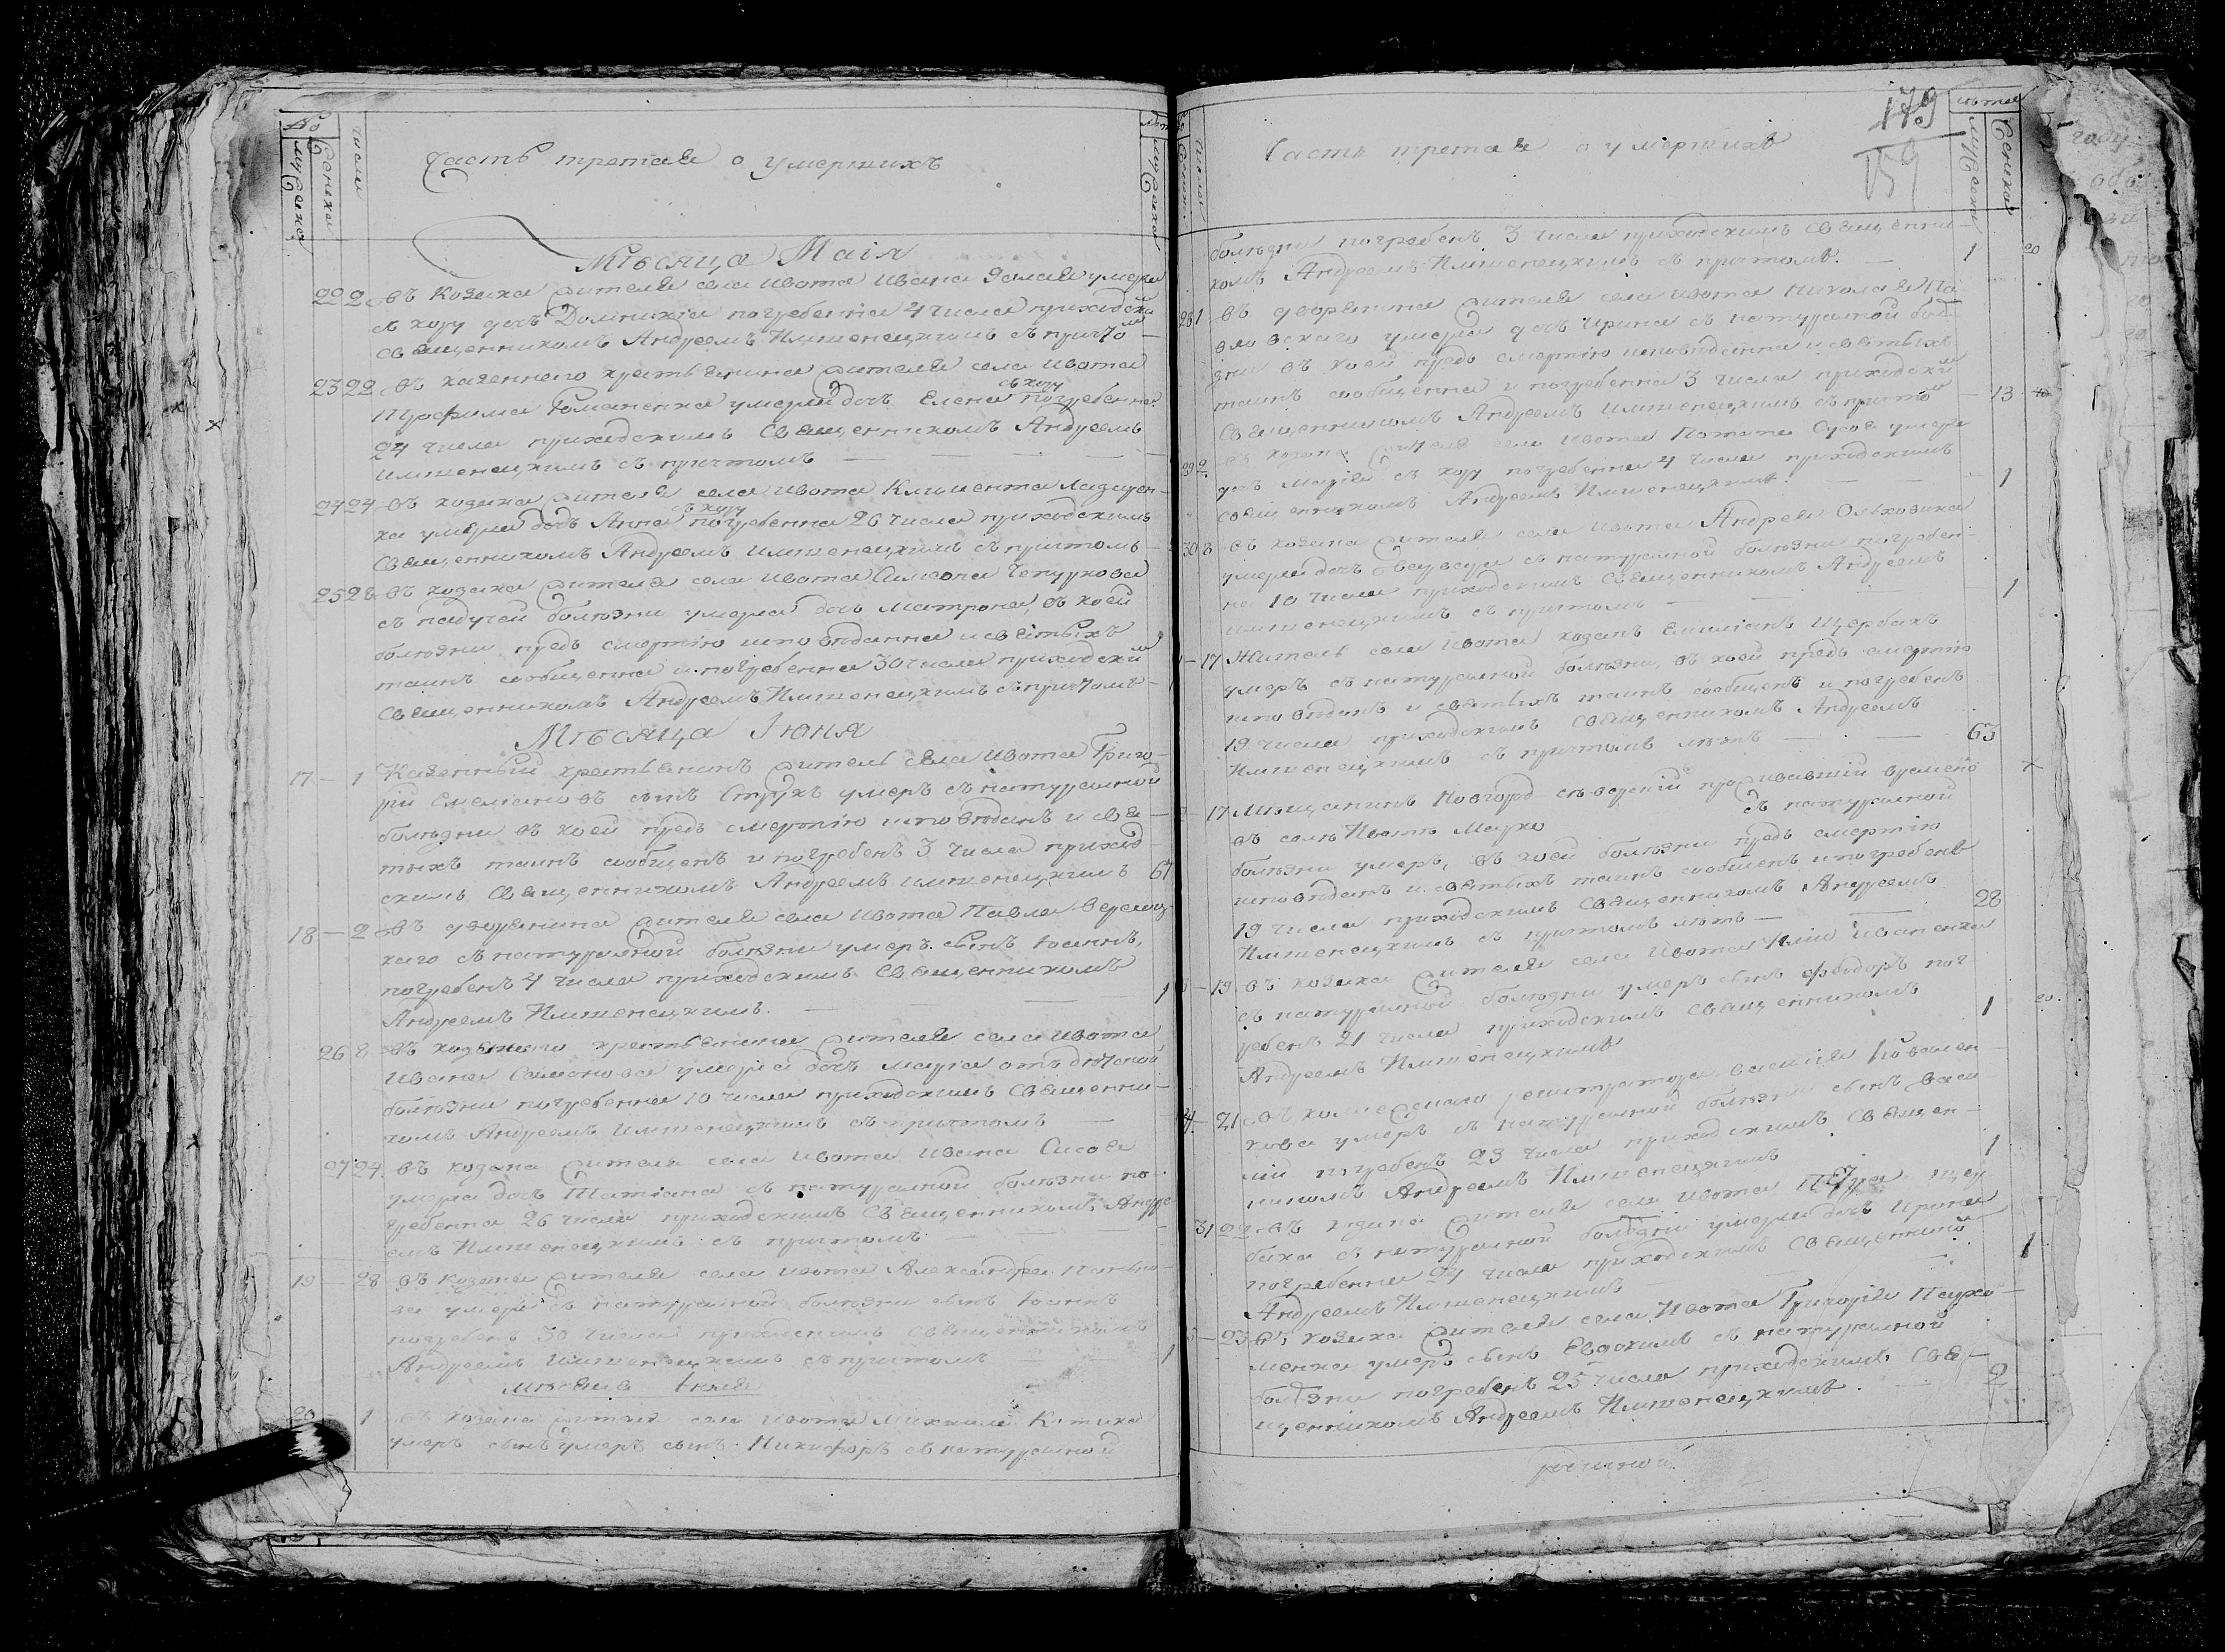 №
мужеска
женска
число
Часть третая о умершихъ
лѣт
мужеска
Мѣсяца Маія
22 2 въ козака жителя села Ивота Ивана умерла
съ кору дочь Домникіа погребенна 4 числа приходски
священникомъ Андреемъ Имшенецкимъ съ причто
23 22 въ казенного крестьянина жителя села Ивота
Трофима Романенка умерла дочь Елена съ кору погребенна
24 числа приходскимъ священникомъ Андреемъ
Имшенецкимъ съ причтомъ
24 24 въ козака жителя села Ивота Климента Лазарен-
ка умерла дочь Анна съ кору погребенна 26 числа приходскимъ
священникомъ Андреемъ Имшенецкимъ съ причтомъ
25 28 въ козака жителя села Ивота Симеона Чепуркова
съ падучей болѣзни умерла дочь Матрона, въ коей
болѣзни предъ смертію исповѣданна и святыхъ
таинъ сообщенна и погребенна 30 числа приходски
священникомъ Андреемъ Имшенецкимъ съ причтомъ
Мѣсяца Іюня
17 — 1 Казенный крестьянинъ житель села Ивота Григо-
рій Емеліановъ сынъ Струкъ умеръ съ натуралной
болѣзни въ коей предъ смертію исповѣданъ и свя
тыхъ таинъ сообщенъ и погребенъ 3 числа приход
скимъ священникомъ Андреемъ Имшенецкимъ 67
18 — 2 въ дворянина жителя села Ивота Павла Верещ-
каго съ натуралной болѣзни умеръ сынъ Іоаннъ,
погребенъ 4 числа приходскимъ священникомъ
Андреемъ Имшенецкимъ. — 1
26 8 въ казенного крестьянина жителя села Ивота
Ивана Самонова умерла дочь Маріа отъ дѣтской
болѣзни погребенна 10 числа приходскимъ священни-
комъ Андреемъ Имшенецкимъ съ причтомъ —
27 24 въ козака жителя села Ивота Ивана Сисоя
умерла дочь Татіана съ натуралной болѣзни по-
гребенна 26 числа приходскимъ священникомъ Андре
емъ Имшенецкимъ съ причтомъ
19 — 28 въ козака жителя села Ивота Александра Панько-
ва умеръ съ натуралной болѣзни сынъ Іоаннъ
погребенъ 30 числа приходскимъ священникомъ
Андреемъ Имшенецкимъ съ причтомъ 1
мѣсяца Іюля
20 — 1 въ козака жителя села Ивота Михаила Китика
умеръ сынъ умеръ сынъ Никифоръ съ натуралной
179
159
Часть третая о умершихъ
лѣта
мужеска
женска
болѣзни погребенъ 3 числа приходскимъ священни-
комъ Андреемъ Имшенецкимъ съ причтомъ. — 1
28 1 въ дворянина жителя села Ивота Николая Па
вловскаго умерла дочь Ирина съ натуралной болѣ
зни въ коей предъ смертію исповѣданна и святыхъ
таинъ сообщенна и погребенна 3 числа приходски
священникомъ Андреемъ Имшенецкимъ съ причто — 13
29 2 въ козака жителя села Ивота Потапа Сусоя умерла
дочь Маріа съ кору погребенна 4 числа приходскимъ
священникомъ Андреемъ Имшенецкимъ. 1
30 8 въ козака жителя села Ивота Андрея Ольховика
умерла дочь съ натуралной болѣзни погребен-
на 10 числа приходскимъ священникомъ Андреемъ
Имшенецкимъ съ причтомъ — 1
— 17 Житель села Ивота козакъ Емиліанъ Щербакъ
умеръ съ натуралной болѣзни, въ коей предъ смертію
исповѣданъ и святыхъ таинъ сообщенъ и погребенъ
19 числа приходскимъ священникомъ Андреемъ
Имшенецкимъ съ причтомъ лѣтъ — 63
— 17 Мѣщанинъ Новгород-сѣверскій проживавшій времено
въ селѣ Ивотѣ Марко съ натуралной
болѣзни умеръ, въ коей болѣзни предъ смертію
исповѣданъ и святыхъ таинъ сообщенъ и погребенъ
19 числа приходскимъ священникомъ Андреемъ
Имшенецкимъ съ причтомъ лѣтъ — 28
— 19 въ козака жителя села Ивота Иліи Иваненка
съ натуралной болѣзни умеръ сынъ Феодоръ пог
ребенъ 21 числа приходскимъ священникомъ 1
Андреемъ Имшенецкимъ
— 21 въ коллежскаго регистратора Василія Ковален
кова умеръ съ натуралной болѣзни сынъ Васи
лій погребенъ 23 числа приходскимъ священ-
никомъ Андреемъ Имшенецкимъ 1
31 22 въ козака жителя села Ивота Петра Щер
бака съ натуралной болѣзни умерла дочь Ирина
погребенна 24 числа приходскимъ священнико
Андреемъ Имшенецкимъ 1
— 23 въ козака жителя села Ивота Григорія Пархо-
менка умеръ сынъ Евдокимъ съ натуралной
болѣзни погребенъ 25 числа приходскимъ свя-
щенникомъ Андреемъ Имшенецкимъ. 2